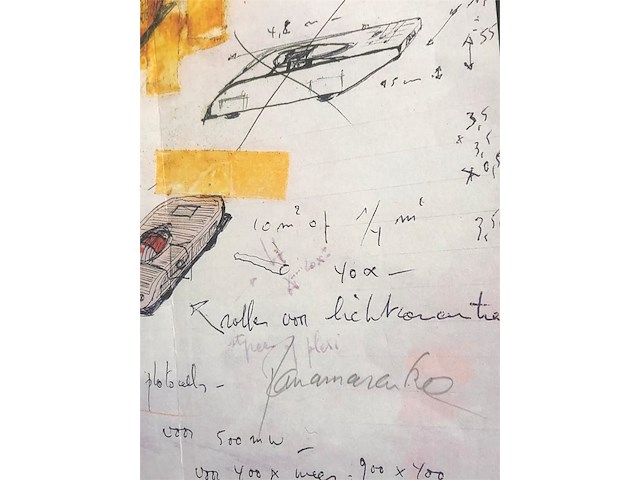 4,8 m
A 55
95 m
3,5
x 3,5
x 0,5
3,5
10 m² of 1/4 m²
40x
40x —
rollen voor lichtconcentra
plexi
Panamarenko
photocells —
voor 500 mW —
voor 400 x meer - 900 x 400